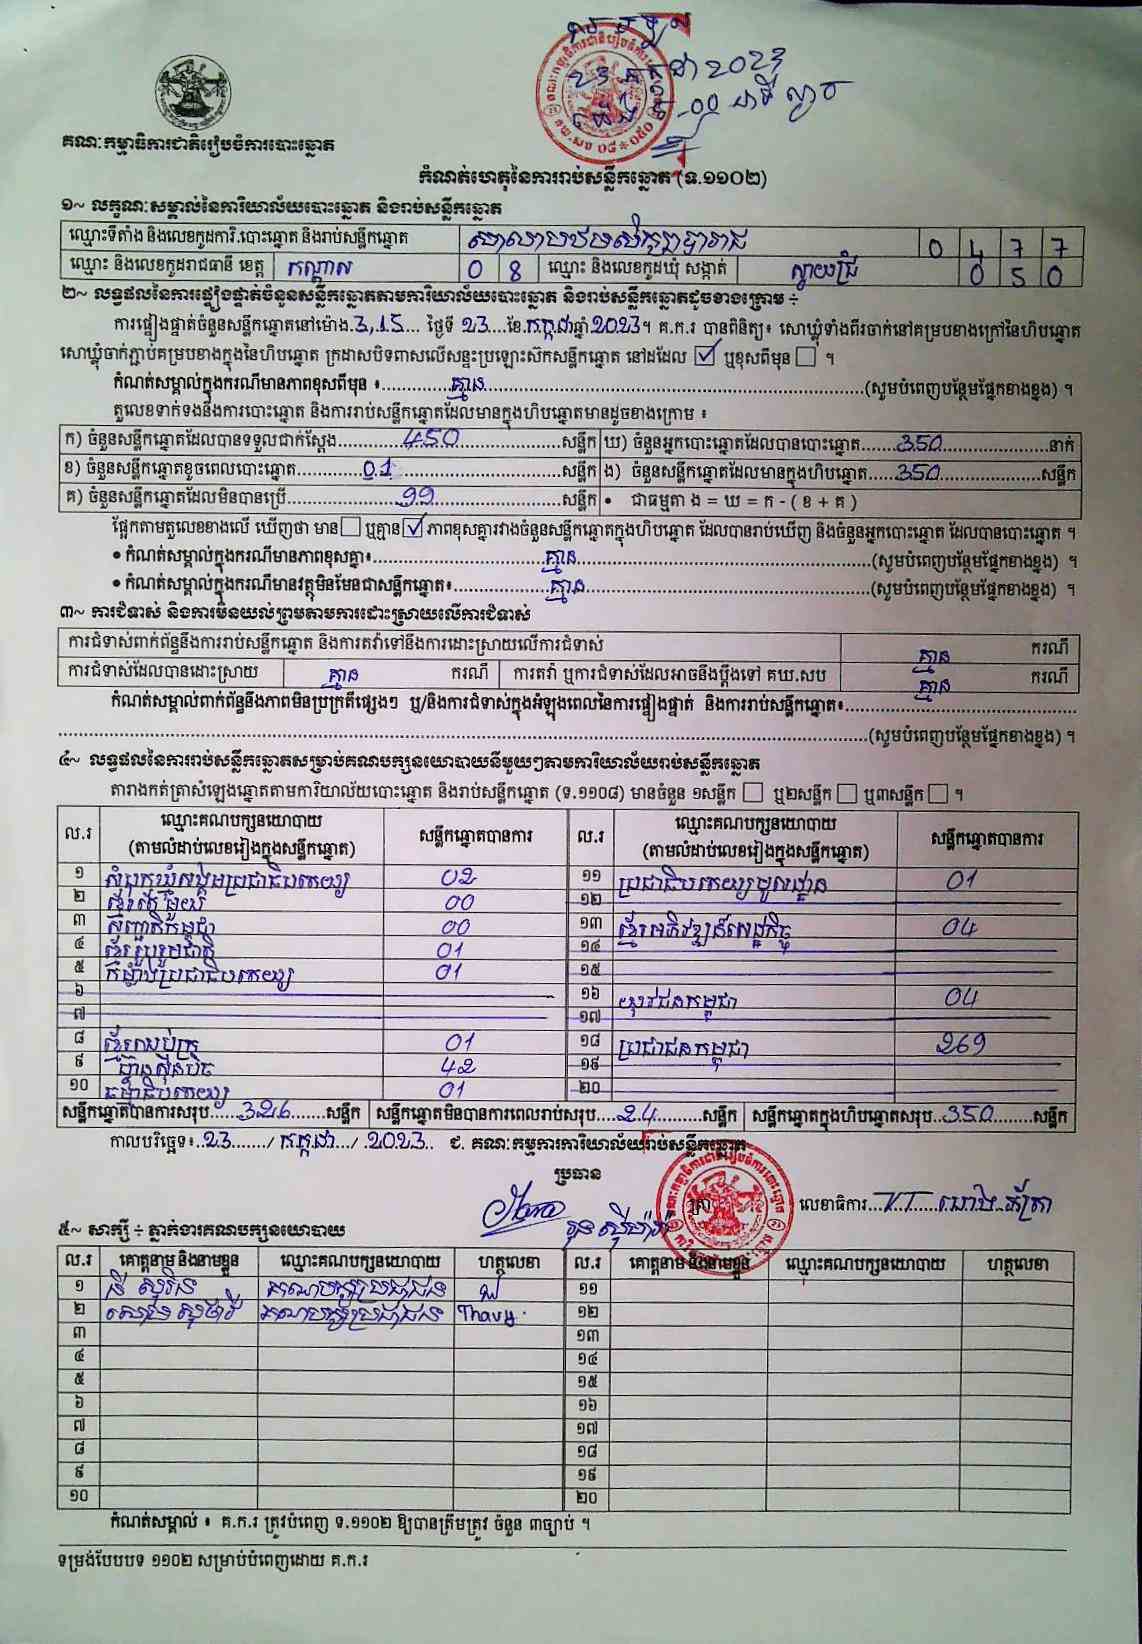 ២៣ កក្កដា ២០២៣
គណៈកម្មាធិការជាតិរៀបចំការបោះឆ្នោត
កំណត់ហេតុនៃការរាប់សន្លឹកឆ្នោត (ទ.១១០២)
១~ លក្ខណៈសម្គាល់នៃការិយាល័យបោះឆ្នោត និងរាប់សន្លឹកឆ្នោត
ឈ្មោះទីតាំង និងលេខកូដការិ.បោះឆ្នោត និងរាប់សន្លឹកឆ្នោត 0 4 7 7
ឈ្មោះ និងលេខកូដរាជធានី ខេត្ត កណ្ដាល 0 8 ឈ្មោះ និងលេខកូដឃុំ សង្កាត់ ស្វាយជ្រំ 0 5 0
២~ លទ្ធផលនៃការផ្ទៀងផ្ទាត់ចំនួនសន្លឹកឆ្នោតតាមការិយាល័យបោះឆ្នោត និងរាប់សន្លឹកឆ្នោតដូចខាងក្រោម ÷
ការផ្ទៀងផ្ទាត់ចំនួនសន្លឹកឆ្នោតនៅម៉ោង.3,15.... ថ្ងៃទី 23....ខែ.កក្កដាឆ្នាំ2023។ គ.ក.រ បានពិនិត្យ៖ សោឃ្លុំទាំងពីរចាក់នៅគម្របខាងក្រៅនៃហិបឆ្នោត
សោឃ្លុំចាក់ភ្ជាប់គម្របខាងក្នុងនៃហិបឆ្នោត ក្រដាសបិទពាសលើសន្ទះប្រឡោះស៊កសន្លឹកឆ្នោត នៅដដែល ☑ ឬខុសពីមុន ☐ ។
កំណត់សម្គាល់ក្នុងករណីមានភាពខុសពីមុន ៖ គ្មាន (សូមបំពេញបន្ថែមផ្នែកខាងខ្នង) ។
តួលេខទាក់ទងនឹងការបោះឆ្នោត និងការរាប់សន្លឹកឆ្នោតដែលមានក្នុងហិបឆ្នោតមានដូចខាងក្រោម ៖
ក) ចំនួនសន្លឹកឆ្នោតដែលបានទទួលជាក់ស្ដែង 450 សន្លឹក ឃ) ចំនួនអ្នកបោះឆ្នោតដែលបានបោះឆ្នោត 350 នាក់
ខ) ចំនួនសន្លឹកឆ្នោតខូចពេលបោះឆ្នោត 01 សន្លឹក ង) ចំនួនសន្លឹកឆ្នោតដែលមានក្នុងហិបឆ្នោត 350 សន្លឹក
គ) ចំនួនសន្លឹកឆ្នោតដែលមិនបានប្រើ 99 សន្លឹក • ជាធម្មតា ង = ឃ = ក - ( ខ + គ )
ផ្អែកតាមតួលេខខាងលើ ឃើញថា មាន ☐ ឬគ្មាន ☑ ភាពខុសគ្នារវាងចំនួនសន្លឹកឆ្នោតក្នុងហិបឆ្នោត ដែលបានរាប់ឃើញ និងចំនួនអ្នកបោះឆ្នោត ដែលបានបោះឆ្នោត ។
• កំណត់សម្គាល់ក្នុងករណីមានភាពខុសគ្នា៖ គ្មាន (សូមបំពេញបន្ថែមផ្នែកខាងខ្នង) ។
• កំណត់សម្គាល់ក្នុងករណីមានវត្ថុមិនមែនជាសន្លឹកឆ្នោត៖ គ្មាន (សូមបំពេញបន្ថែមផ្នែកខាងខ្នង) ។
៣~ ការជំទាស់ និងការមិនយល់ព្រមតាមការដោះស្រាយលើការជំទាស់
ការជំទាស់ពាក់ព័ន្ធនឹងការរាប់សន្លឹកឆ្នោត និងការតវ៉ាទៅនឹងការដោះស្រាយលើការជំទាស់ គ្មាន ករណី
ការជំទាស់ដែលបានដោះស្រាយ គ្មាន ករណី ការតវ៉ា ឬការជំទាស់ដែលអាចនឹងប្ដឹងទៅ គឃ.សប គ្មាន ករណី
កំណត់សម្គាល់ពាក់ព័ន្ធនឹងភាពមិនប្រក្រតីផ្សេងៗ ឬ/និងការជំទាស់ក្នុងអំឡុងពេលនៃការផ្ទៀងផ្ទាត់ និងការរាប់សន្លឹកឆ្នោត៖
(សូមបំពេញបន្ថែមផ្នែកខាងខ្នង) ។
៤~ លទ្ធផលនៃការរាប់សន្លឹកឆ្នោតសម្រាប់គណបក្សនយោបាយនីមួយៗតាមការិយាល័យរាប់សន្លឹកឆ្នោត
តារាងកត់ត្រាសំឡេងឆ្នោតតាមការិយាល័យបោះឆ្នោត និងរាប់សន្លឹកឆ្នោត (ទ.១១០៨) មានចំនួន ១សន្លឹក ☐ ឬ២សន្លឹក ☐ ឬ៣សន្លឹក ☐ ។
ល.រ ឈ្មោះគណបក្សនយោបាយ (តាមលំដាប់លេខរៀងក្នុងសន្លឹកឆ្នោត) សន្លឹកឆ្នោតបានការ ល.រ ឈ្មោះគណបក្សនយោបាយ (តាមលំដាប់លេខរៀងក្នុងសន្លឹកឆ្នោត) សន្លឹកឆ្នោតបានការ
១ សំបុកឃ្មុំសង្គមប្រជាធិបតេយ្យ 02 ១១ ប្រជាធិបតេយ្យមូលដ្ឋាន 01
២ ខ្មែរតែមួយ 00 ១២
៣ សញ្ជាតិកម្ពុជា 00 ១៣ ខ្មែរអភិវឌ្ឍន៍សេដ្ឋកិច្ច 04
៤ ខ្មែររួបរួមជាតិ 01 ១៤
៥ កម្លាំងប្រជាធិបតេយ្យ 01 ១៥
៦ ១៦ យុវជនកម្ពុជា 04
៧ ១៧
៨ ខ្មែរឈប់ក្រ 01 ១៨ ប្រជាជនកម្ពុជា 269
៩ ហ្វ៊ុនស៊ិនប៉ិច 42 ១៩
១០ ធម្មាធិបតេយ្យ 01 ២០
សន្លឹកឆ្នោតបានការសរុប 326 សន្លឹក សន្លឹកឆ្នោតមិនបានការពេលរាប់សរុប 24 សន្លឹក សន្លឹកឆ្នោតក្នុងហិបឆ្នោតសរុប 350 សន្លឹក
កាលបរិច្ឆេទ៖ 23 / កក្កដា / 2023 ជ. គណៈកម្មការការិយាល័យរាប់សន្លឹកឆ្នោត
ប្រធាន
លេខាធិការ
៥~ សាក្សី ÷ ភ្នាក់ងារគណបក្សនយោបាយ
ល.រ គោត្តនាម និងនាមខ្លួន ឈ្មោះគណបក្សនយោបាយ ហត្ថលេខា ល.រ គោត្តនាម និងនាមខ្លួន ឈ្មោះគណបក្សនយោបាយ ហត្ថលេខា
១ គណបក្សប្រជាជន ១១
២ គណបក្សប្រជាជន Thavy ១២
៣ ១៣
៤ ១៤
៥ ១៥
៦ ១៦
៧ ១៧
៨ ១៨
៩ ១៩
១០ ២០
កំណត់សម្គាល់ ៖ គ.ក.រ ត្រូវបំពេញ ទ.១១០២ ឱ្យបានត្រឹមត្រូវ ចំនួន ៣ច្បាប់ ។
ទម្រង់បែបបទ ១១០២ សម្រាប់បំពេញដោយ គ.ក.រ